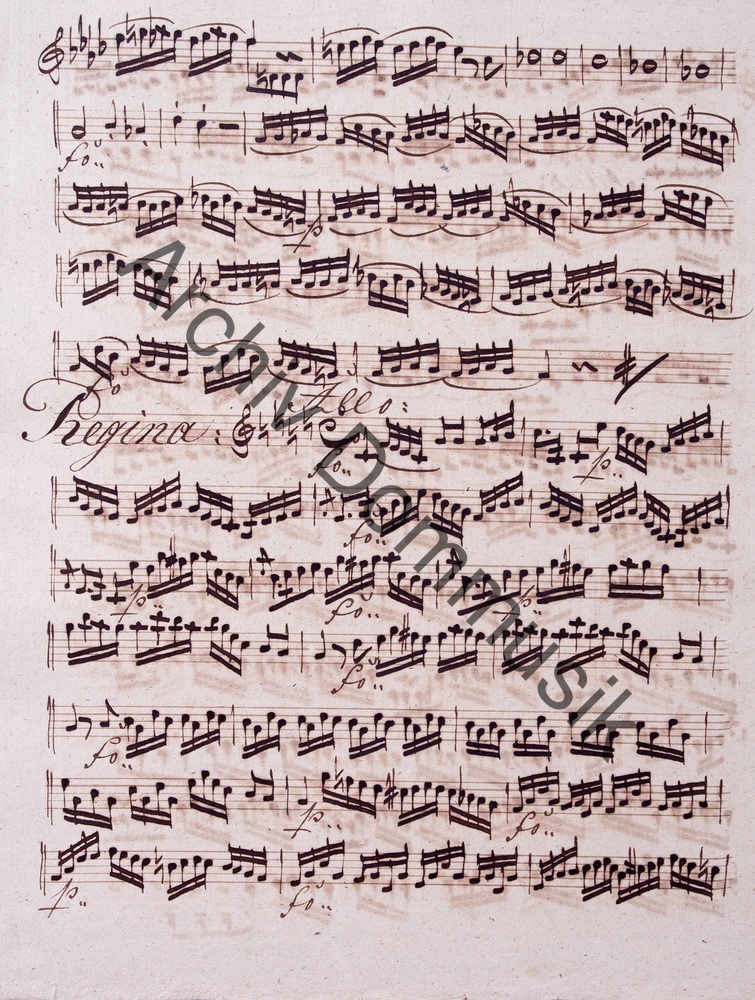 fo:
p
fo
Regina: Allo:
fo.. p..
fo..
p.. fo.. p..
fo..
fo..
p.. fo..
p.. fo..
Archiv Dommusik